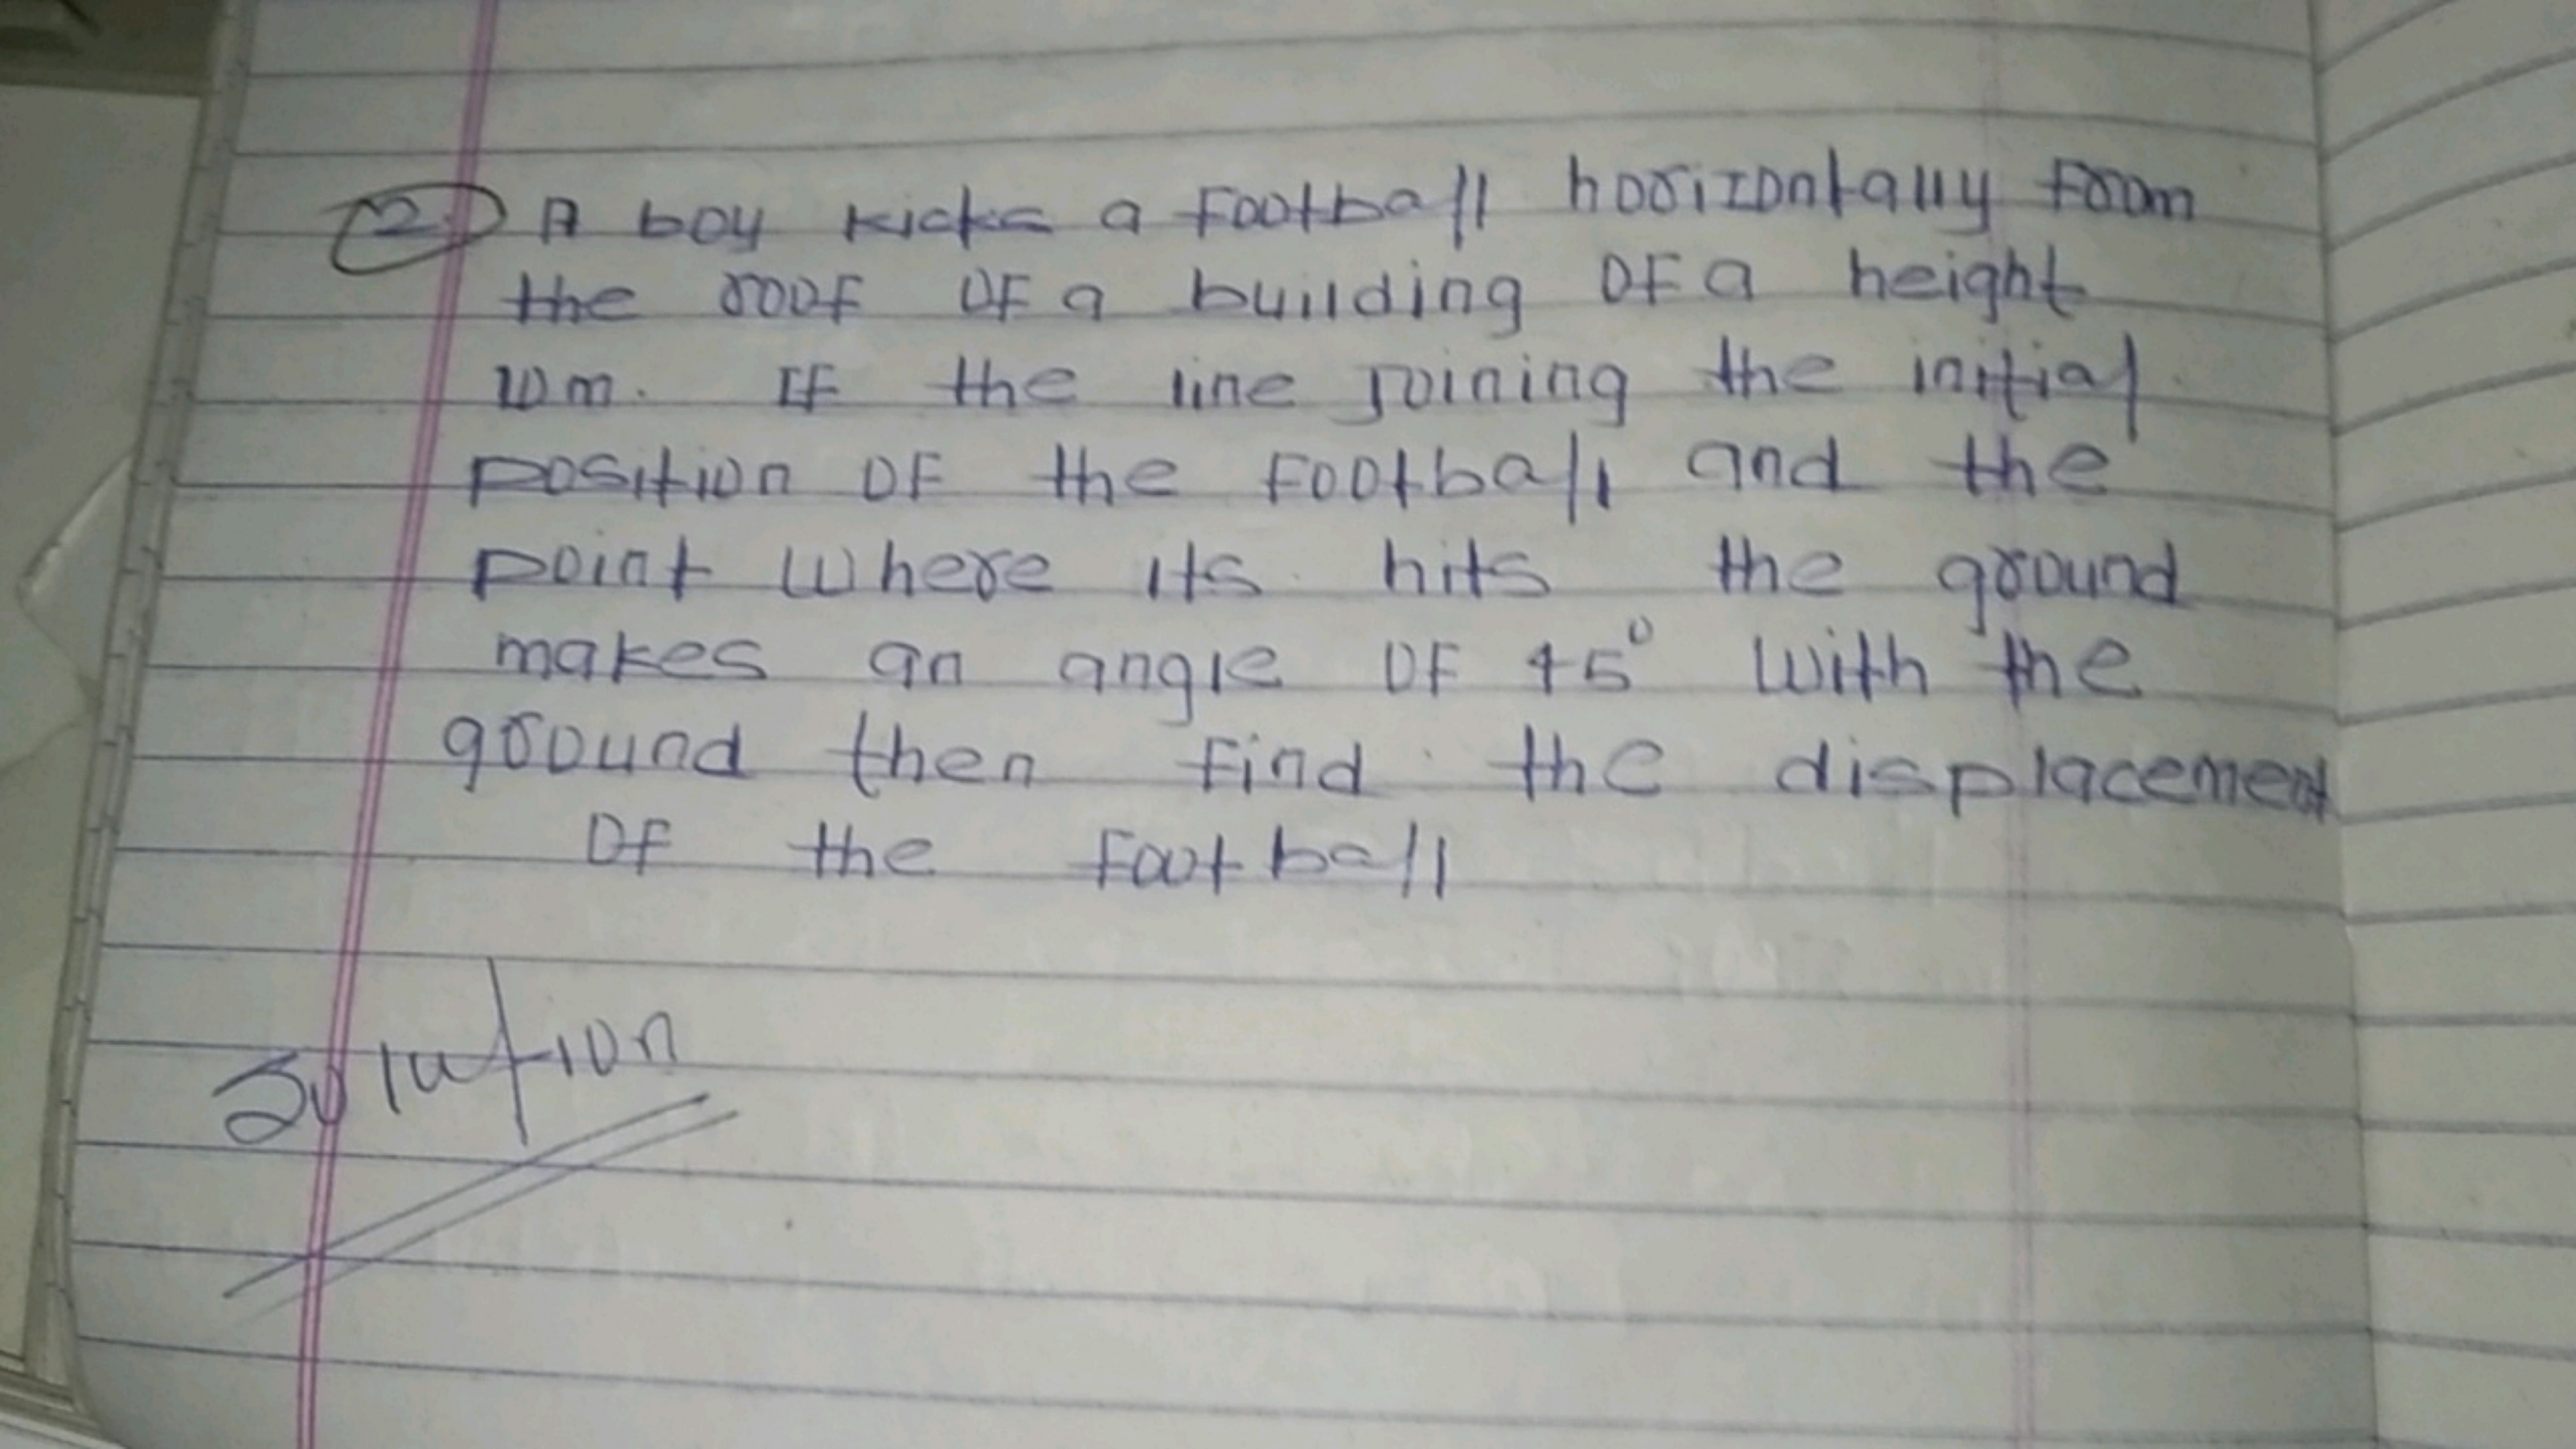 2. A boy kicks a football horizontally from
the roof of a building of a height
10m. If the line joining the initial
position of the football and the
point where its hits the ground
makes an angle of 45° with the
ground then find the displacement
of the football
Solution